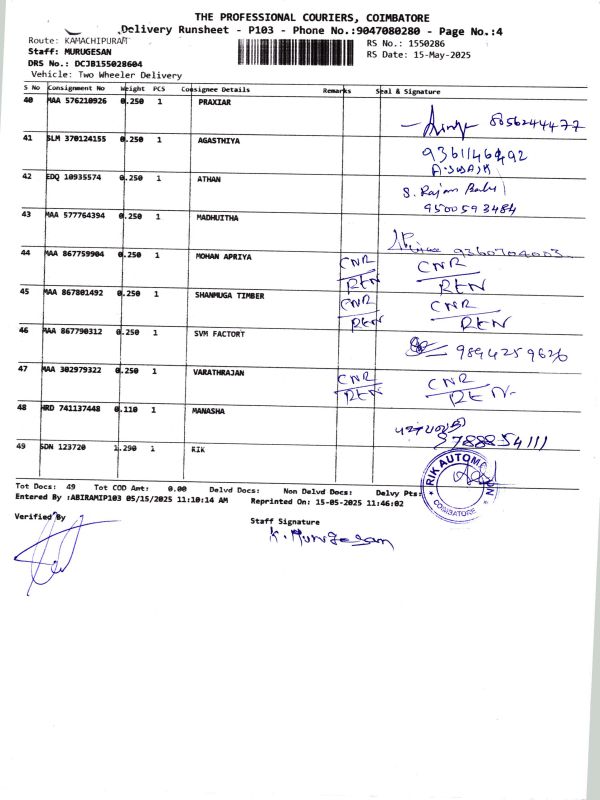 THE PROFESSIONAL COURIERS, COIMBATORE
Delivery Runsheet - P103 - Phone No.:9047080280 - Page No.:4
Route: KAMACHIPURAM
RS No.: 1550286
Staff: MURUGESAN
RS Date: 15-May-2025
DRS No.: DCJB155028604
Vehicle: Two Wheeler Delivery
S No Consignment No Weight PCS Consignee Details Remarks Seal & Signature
40 MAA 576210926 0.250 1 PRAXIAR 8056244477
41 SLM 370124155 0.250 1 AGASTHIYA
42 EDQ 10935574 0.250 1 ATHAN S. Rajan Babu
9500593484
43 MAA 577764394 0.250 1 MADHUITHA
44 MAA 867759904 0.250 1 MOHAN APRIYA CNR CNR
RTN RTN
45 MAA 867801492 0.250 1 SHANMUGA TIMBER CNR CNR
RTN RTN
46 MAA 867790312 0.250 1 SVM FACTORT 9894259626
47 MAA 302979322 0.250 1 VARATHRAJAN CNR CNR
RTN RTN
48 HRD 741137448 0.110 1 MANASHA
9788854111
49 SDN 123720 1.290 1 RIK
RIK AUTOMOTION
COIMBATORE
Tot Docs: 49 Tot COD Amt: 0.00 Delvd Docs: Non Delvd Docs: Delvy Pts:
Entered By :ABIRAMIP103 05/15/2025 11:10:14 AM Reprinted On: 15-05-2025 11:46:02
Verified By
Staff Signature
K. Murugesan